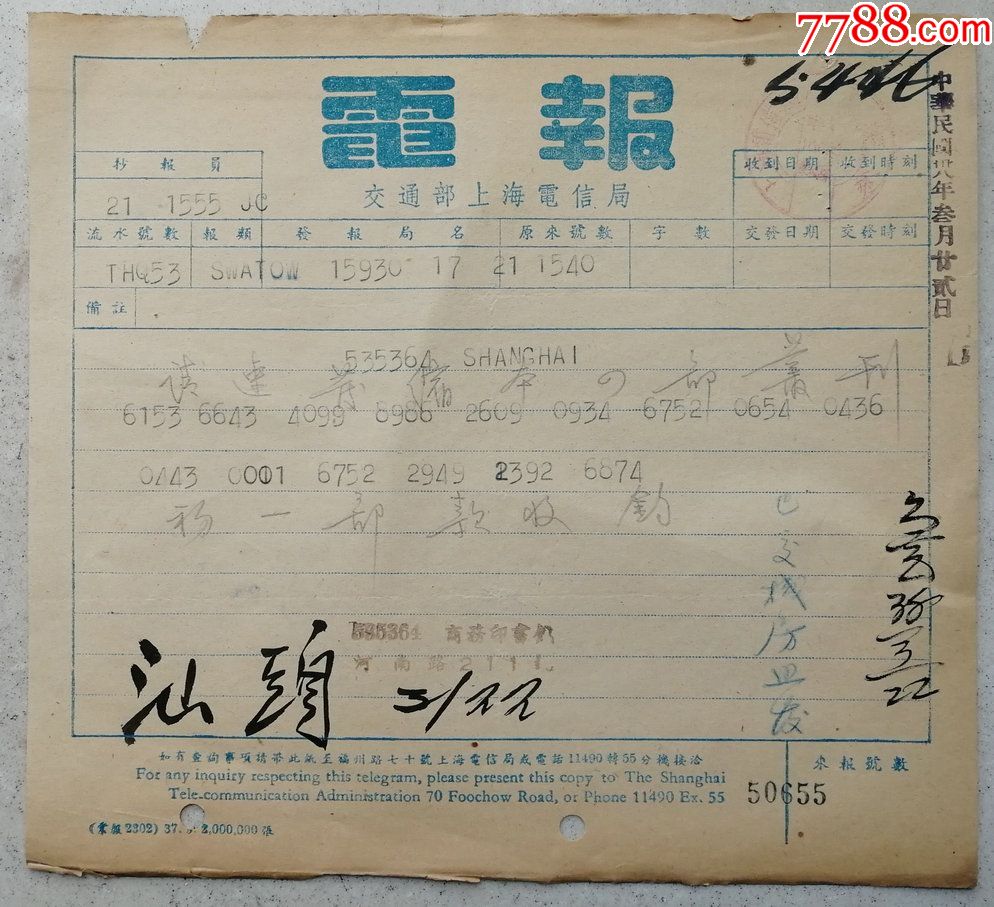 7788.com
電報
中華民國卅八年叁月廿貳日
抄報員
收到日期 收到時刻
交通部上海電信局
21 1555 JC
流水號數 報類 發報局名 原來號數 字數 交發日期 交發時刻
THQ53 SWATOW 15930 17 21 1540
備註
535364 SHANGHAI
請速 本 部 刊
6153 6643 4099 8986 2609 0934 6752 0654 0436
0443 0001 6752 2949 2392 6874
一部款收
已交
535364 商務印書館
河南路211
汕頭 3/22
如有查詢事項携帶此紙至福州路七十號上海電信局或電話11490轉55分機接洽
For any inquiry respecting this telegram, please present this copy to The Shanghai
Tele-communication Administration 70 Foochow Road, or Phone 11490 Ex. 55
來報號數
50655
(業報2302) 37. 2,000,000張